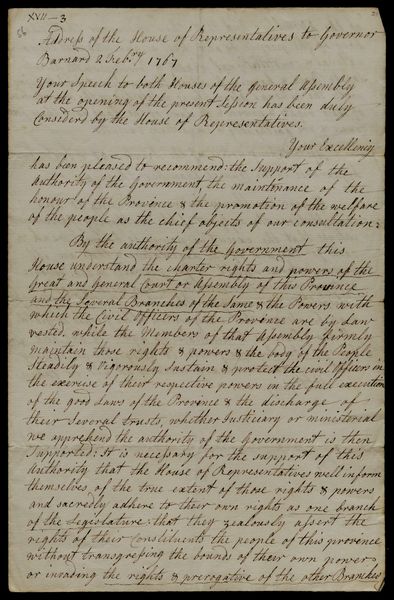 XVII—3
56
Address of the House of Representatives to Governor
Barnard 2 Feb:ry 1767
Your Speech to both Houses of the General Assembly
at the opening of the present Session has been duly
Considerd by the House of Representatives.
Your Excellency
has been pleased to recommend: the Support of the
Authority of the Government, the maintenance of the
honour of the Province & the promotion of the welfare
of the people as the chief objects of our consultation:
By the authority of the Government this
House understand the charter rights and powers of the
Great and General Court or Assembly of this Province
and the Several Branches of the Same & the Powers with
which the Civil Officers of the Province are by Law
vested. while the Members of that Assembly firmly
maintain those rights & powers & the body of the People
Steadily & Vigorously Sustain & protect the civil Officers in
the exercise of their respective powers in the full execution
of the good Laws of the Province & the discharge of
their Several trusts, whether Justiciary or ministerial
we apprehend the authority of the Government is then
Supported: It is necessary for the support of this
Authority that the House of Representatives well inform
themselves of the true extent of those rights & powers
and sacredly adhere to their own rights as one branch
of the Legislature: that they zealously assert the
rights of their Constituents the people of this province
without transgressing the bounds of their own power
or invading the rights & prerogative of the other Branches